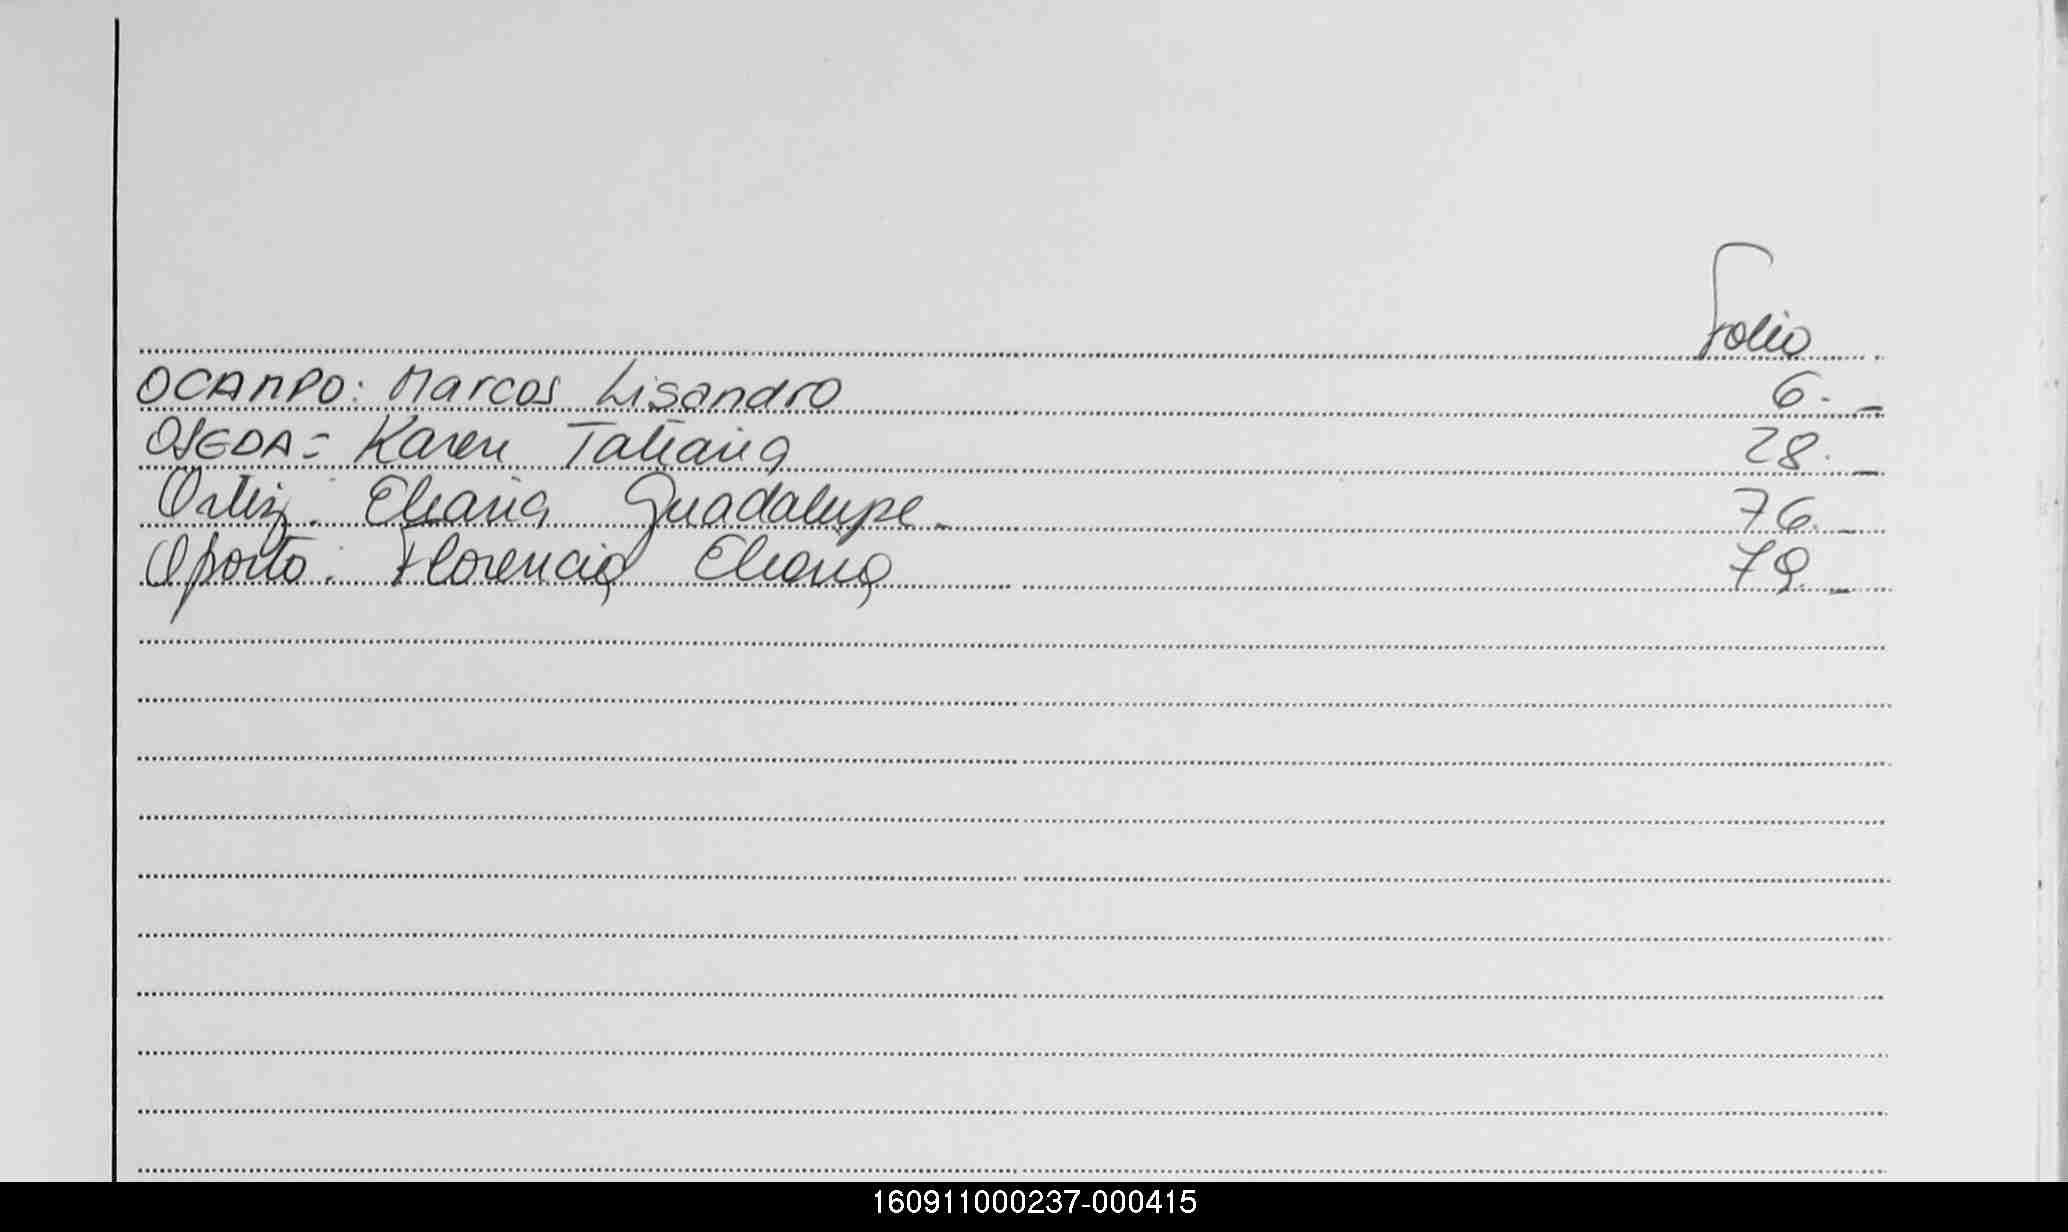 Folio
OCAMPO: Marcos Lisandro 6.-
OJEDA= Karen Tatiana 28.-
Ortiz: Eliana Guadalupe.- 76.-
Oporto: Florencia Eliana 79.-
160911000237-000415